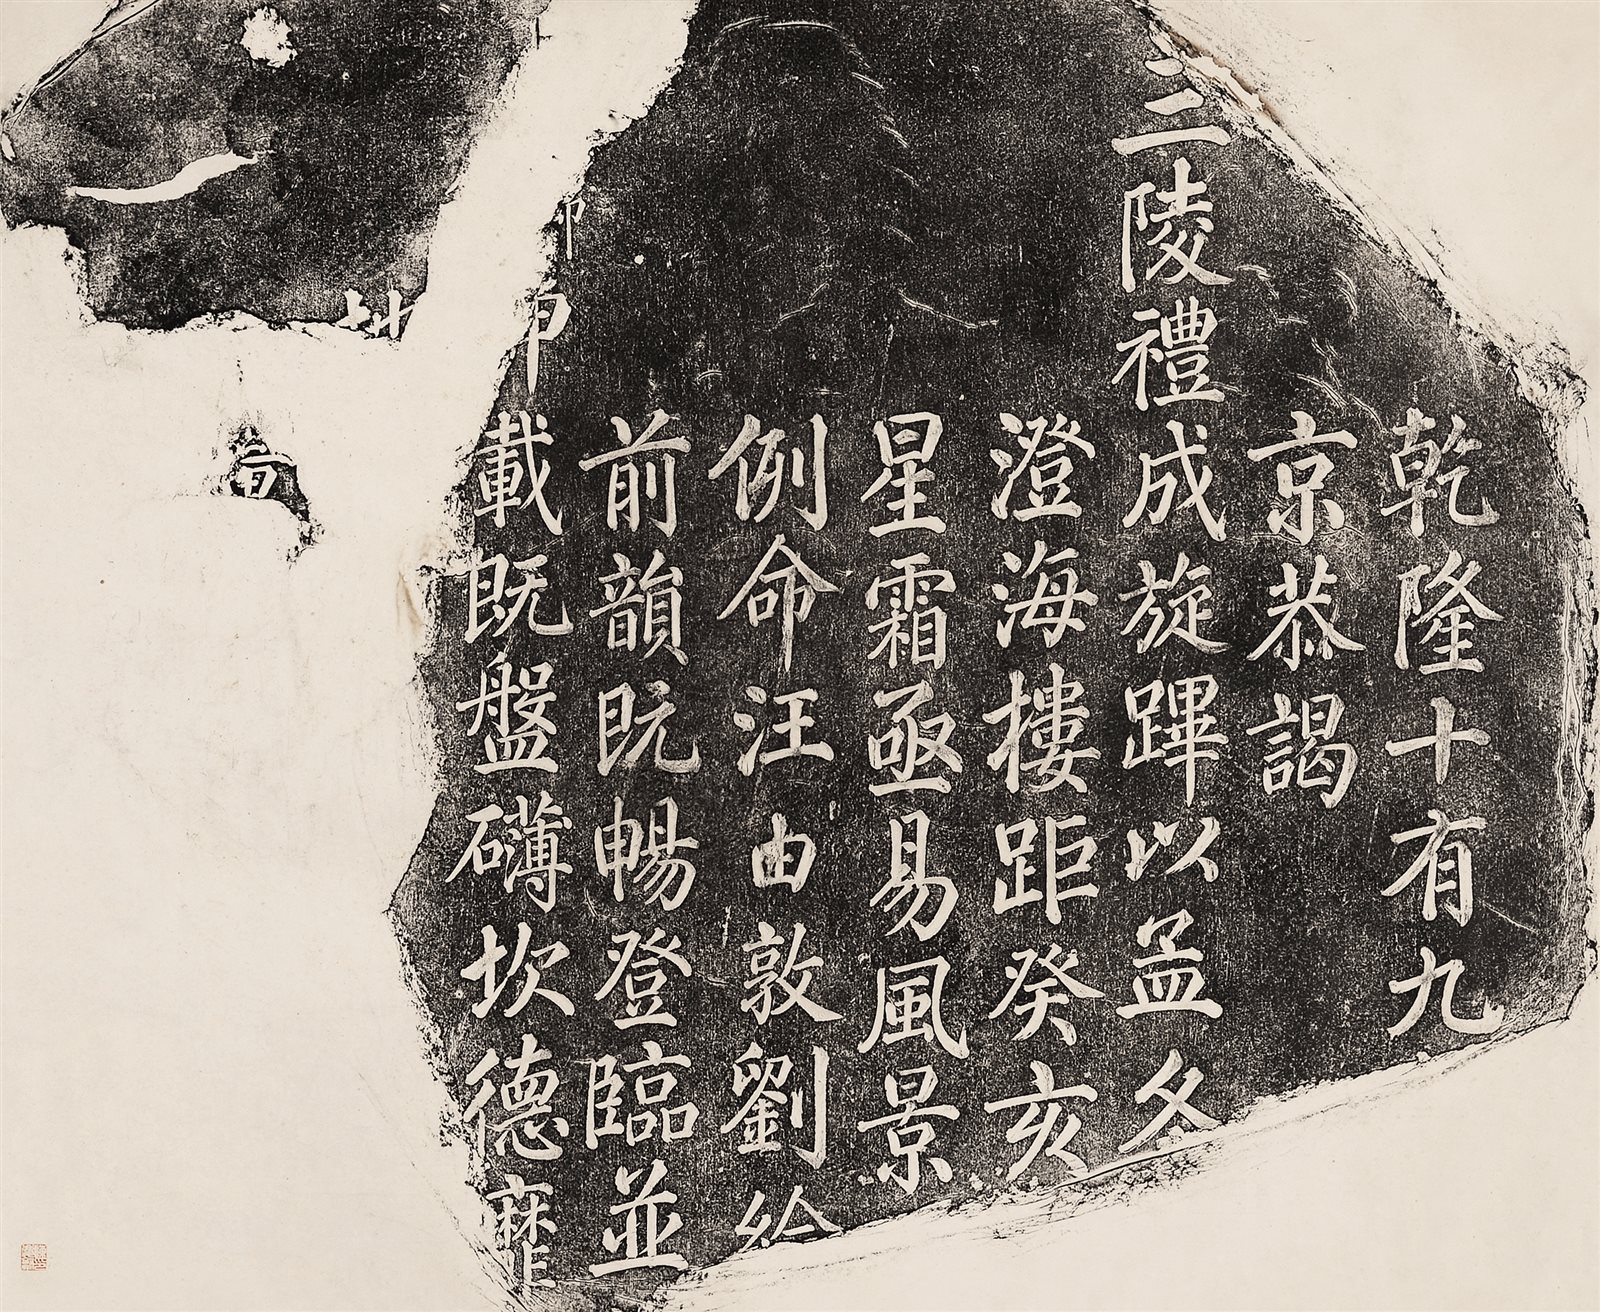 乾隆十有九
京恭謁
三陵禮成旋蹕以孟冬
澄海樓距癸亥
星霜亟易風景
例命汪由敦劉綸
前韻既暢登臨並
載既盤礴坎德靡